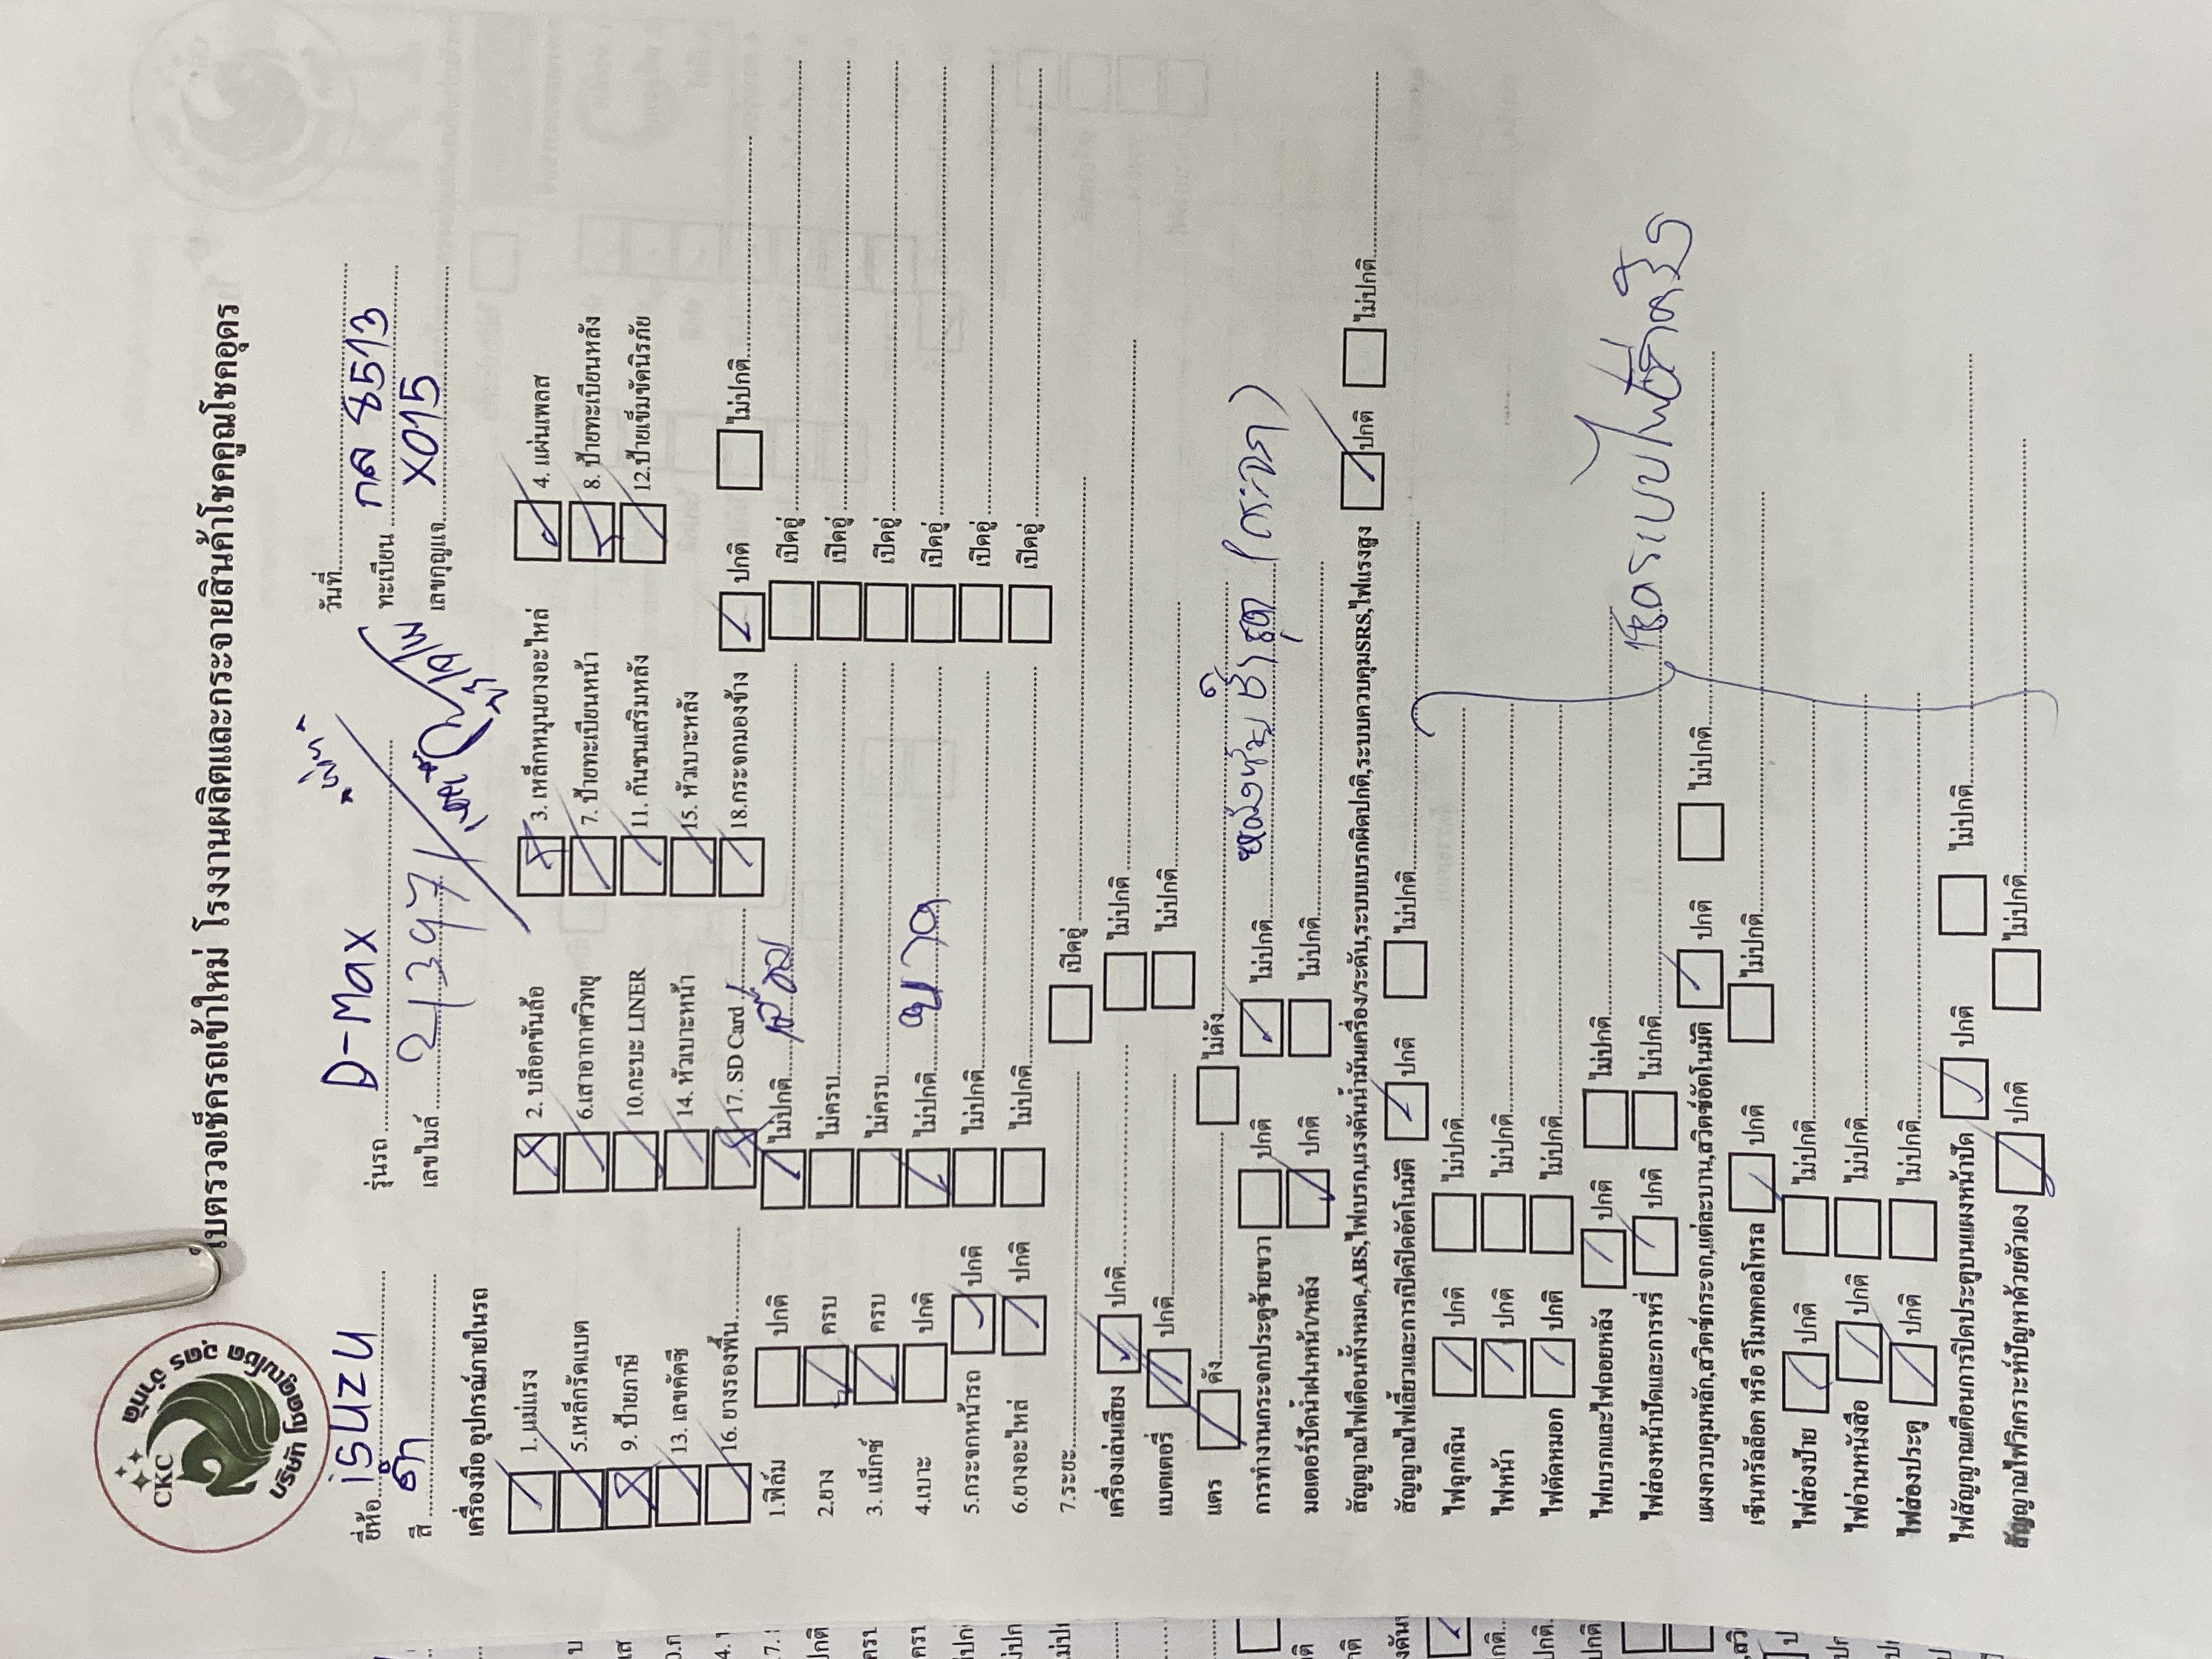 CKC
บริษัท โชคคูณโชค อุดร จำกัด
ใบตรวจเช็ครถเข้าใหม่ โรงงานผลิตและกระจายสินค้าโชคคูณโชคอุดร
วันที่
ยี่ห้อ isuzu รุ่นรถ D-Max ทะเบียน กล 8513
สี ดำ เลขไมล์ 21397 เลขกุญแจ X015
เครื่องมือ อุปกรณ์ภายในรถ
1. แม่แรง 2. บล็อคขันล้อ 3. เหล็กหมุนยางอะไหล่ 4. แผ่นเพลส
5.เหล็กรัดแบต 6.เสาอากาศวิทยุ 7. ป้ายทะเบียนหน้า 8. ป้ายทะเบียนหลัง
9. ป้ายภาษี 10.กะบะ LINER 11. กันชนเสริมหลัง 12.ป้ายเข็มขัดนิรภัย
13. เลขคัตซี 14. หัวเบาะหน้า 15. หัวเบาะหลัง
16. ยางรองพื้น 17. SD Card 18.กระจกมองข้าง ปกติ ไม่ปกติ
1.ฟิล์ม ปกติ ไม่ปกติ เปิดอู่
2.ยาง ครบ ไม่ครบ เปิดอู่
3. แม็กซ์ ครบ ไม่ครบ เปิดอู่
4.เบาะ ปกติ ไม่ปกติ ขาด เปิดอู่
5.กระจกหน้ารถ ปกติ ไม่ปกติ เปิดอู่
6.ยางอะไหล่ ปกติ ไม่ปกติ เปิดอู่
7.ระยะ เปิดอู่
เครื่องเล่นเสียง ปกติ ไม่ปกติ
แบตเตอรี่ ปกติ ไม่ปกติ
แตร ดัง ไม่ดัง
การทำงานกระจกประตูซ้ายขวา ปกติ ไม่ปกติ ชำรุด
มอเตอร์ปัดน้ำฝนหน้า/หลัง ปกติ ไม่ปกติ
สัญญาณไฟเตือนทั้งหมด,ABS,ไฟเบรก,แรงดันน้ำมันเครื่อง/ระดับ,ระบบเบรกผิดปกติ,ระบบควบคุมSRS,ไฟแรงสูง ปกติ ไม่ปกติ
สัญญาณไฟเลี้ยวและการเปิดปิดอัตโนมัติ ปกติ ไม่ปกติ
ไฟฉุกเฉิน ปกติ ไม่ปกติ
ไฟหน้า ปกติ ไม่ปกติ
ไฟตัดหมอก ปกติ ไม่ปกติ
ไฟเบรกและไฟถอยหลัง ปกติ ไม่ปกติ
ไฟส่องหน้าปัดและการหรี่ ปกติ ไม่ปกติ
แผงควบคุมหลัก,สวิตช์กระจก,แต่ละบาน,สวิตช์อัตโนมัติ ปกติ ไม่ปกติ
เซ็นทรัลล็อค หรือ รีโมทคอลโทรล ปกติ ไม่ปกติ
ไฟส่องป้าย ปกติ ไม่ปกติ
ไฟอ่านหนังสือ ปกติ ไม่ปกติ
ไฟส่องประตู ปกติ ไม่ปกติ
ไฟสัญญาณเตือนการปิดประตูบนแผงหน้าปัด ปกติ ไม่ปกติ
สัญญาณไฟวิเคราะห์ปัญหาด้วยตัวเอง ปกติ ไม่ปกติ